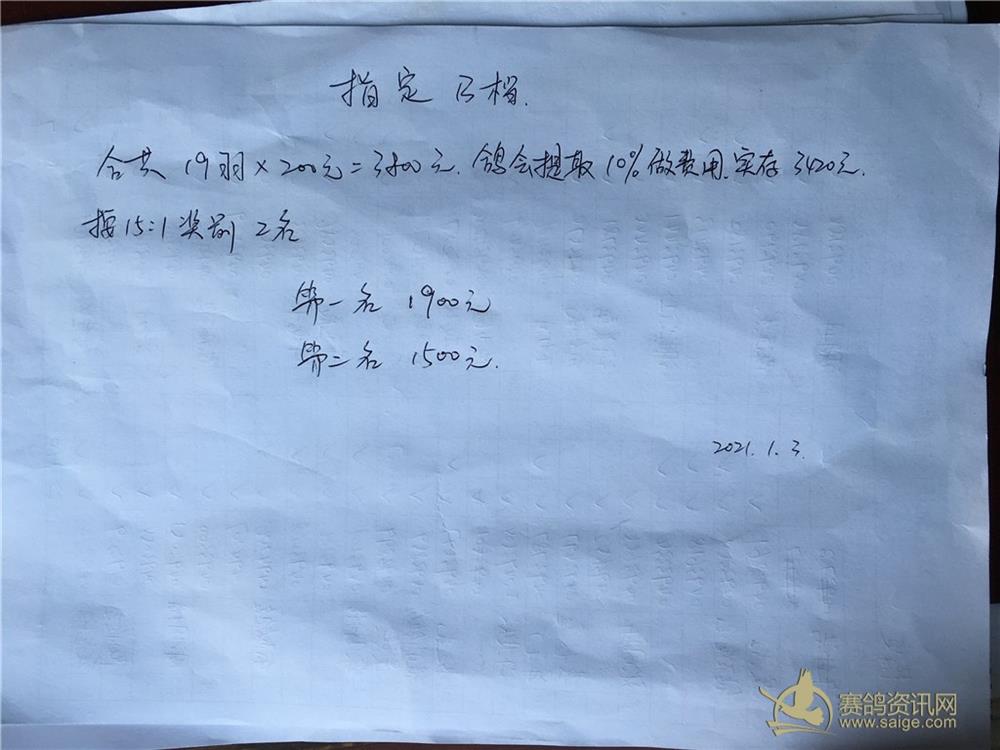 指定B档.
合共 19羽×200元=3800元.鸽会提取10%做费用.实存3420元.
按15:1奖励 2名
第一名 1900元
第二名 1500元.
2021.1.3.
赛鸽资讯网
www.saige.com